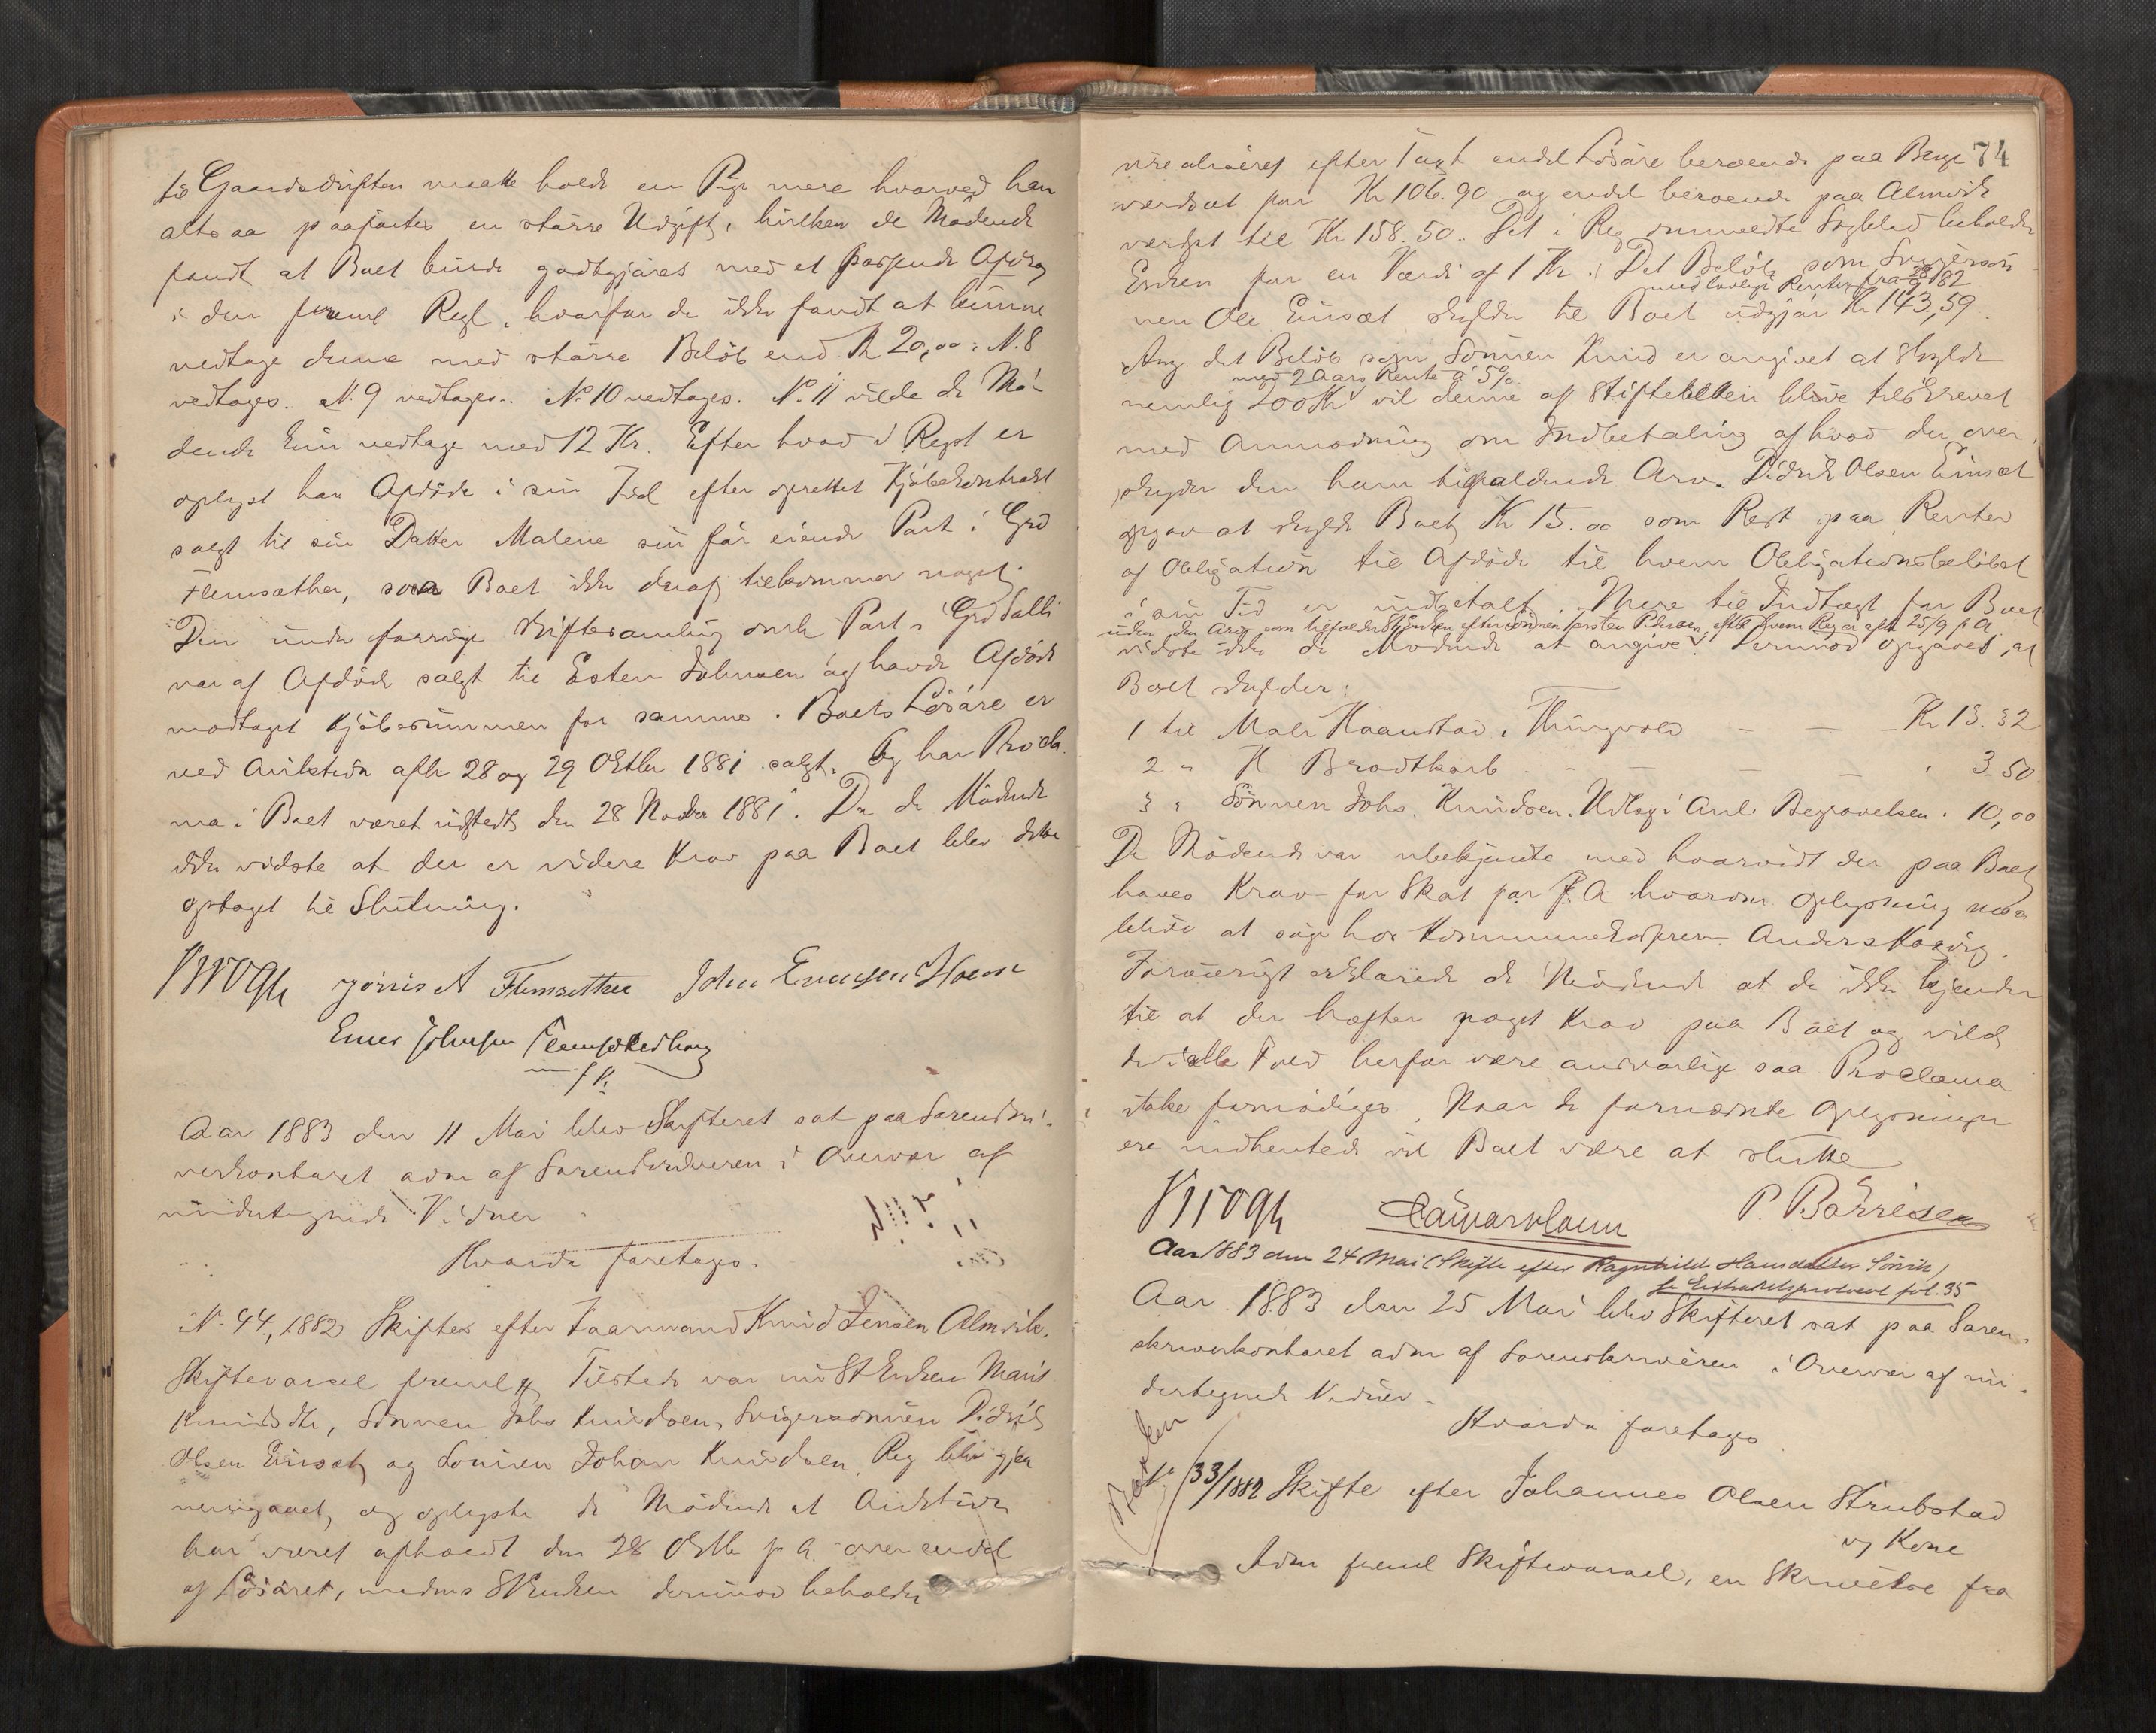 til Gaardsdriften maatte holde en Pige mere hvorved han
altsaa paaførtes en større Udgift, hvilken de Mødende
fandt at Boet burde godtgjøres med et passende Afdrag
i den freml Regl, hvorfor de ikke fandt at kunne
vedtage denne med større Beløb end Kr 20,00. N. 8
vedtages. N. 9 vedtages. No 10 vedtages. No 11 vilde de Mø-
dende kun vedtage med 12 Kr. Efter hvad i Regst er
oplyst har Afdøde i sin Tid efter oprettet Kjøbekontrakt
solgt til sin Datter Malene sin før eiende Part i Grd
Flemsæther, saa Boet ikke deraf tilkommer noget.
Den under forrige Skiftesamling omh Part i Grd Salli
var af Afdøde solgt til Esten Johnsen og havde Afdøde
modtaget Kjøbesummen for samme. Boets Løsøre er
ved Auktion afh 28 og 29 Oktbr 1881 solgt. Og har Procla-
ma i Boet været udstedt den 28 Novbr 1881. Da de Mødende
ikke vidste at der er videre Krav paa Boet blev dette
optaget til Slutning.
Krogh Jørris A Flemsether John
Einer Johnsen Flemsæterhaug
m f P.
Aar 1883 den 11 Mai blev Skifteret sat paa Sorenskri-
verkontoret adm af Sorenskriveren i Overvær af
undertegnede Vidner
Hvorda foretages.
N. 44, 1882 Skiftet efter Kaarmand Knud Jensen Almvik.
Skiftevarsel fremlg. Tilstede var nu St Enken Marit
Knudsdtr, Sønnen Johs Knudsen, Svigersønnen Didrik
Olsen Einset og Sønnen Johan Knudsen. Reg blev gjen
nemgaaet, og oplyste de Mødende at Auktion
har været afholdt den 28 Oktbr f A over endel
af Løsøret, medens St Enken derimod beholder
74
urealiseret efter Taxt endel Løsøre beroende paa Berge
værdsat for Kr 106.90 og endel beroende paa Almvik
værdsat til Kr 158.50. Det i Reg ommeldte beholder
Enken for en Værdi af 1 Kr. Det Beløb som Svigersøn
med lovlige Renter fra 28/9 82
nen Ole Einset skylder til Boet udgjør Kr 143,59
Ang. det Beløb som Sønnen Knud er angivet at skylde
med 2 Aars Rente á 5%
nemlig 200 Kr vil denne af Skifteretten blive tilskrevet
med Anmodning om Indbetaling af hvad der over-
skyder den ham tilfaldende Arv. Didrik Olsen Einset
opgav at skylde Boet Kr 15.00 som Rest paa Renter
af Obligation til Afdøde til hvem Obligationsbeløbet
i sin Tid er indbetalt. Mere til Indtægt for Boet
uden den Arv, som tilfalder efter Sønnen Pedersen, efter hvem Reg er afh 25/9 f A
vidste ikke de Mødende at angive. Derimod opgaves, at
Boet skylder:
1 til Maler Haanstad i Thingvold — — Kr 13.32
2 " H Brodtkorb - — — — " 3.50.
3 " Sønnen Johs. Knudsen. Udlæg i Anl Begravelsen. 10,00
De Mødende var ubekjendte med hvorvidt der paa Boet
haves Krav for Skat for f. A hvorom Oplysning maa
blive at søge hos Kommunekasserer Anders
Forøvrigt erklærede de Mødende at de ikke kjender
til at der hæfter noget Krav paa Boet og vilde
de i alle Fald herfor være ansvarlig saa Proclama
ikke fornødiges. Naar de fornævnte Oplysninger
ere indhentede vil Boet være at slutte
Krogh P. Børresen
Aar 1883 den 24 Mai (Skifte efter Ragnhild Hansdatter
se Extraretsprotocol fol. 35
Aar 1883 den 25 Mai blev Skifteret sat paa Soren-
skriverkontoret adm af Sorenskriveren i Overvær af un-
dertegnede Vidner -
Hvorda foretages
No 33/1882 Skifte efter Johannes Olsen Strubstad
og Kone
Adm freml Skiftevarsel, en Skrivelse fra